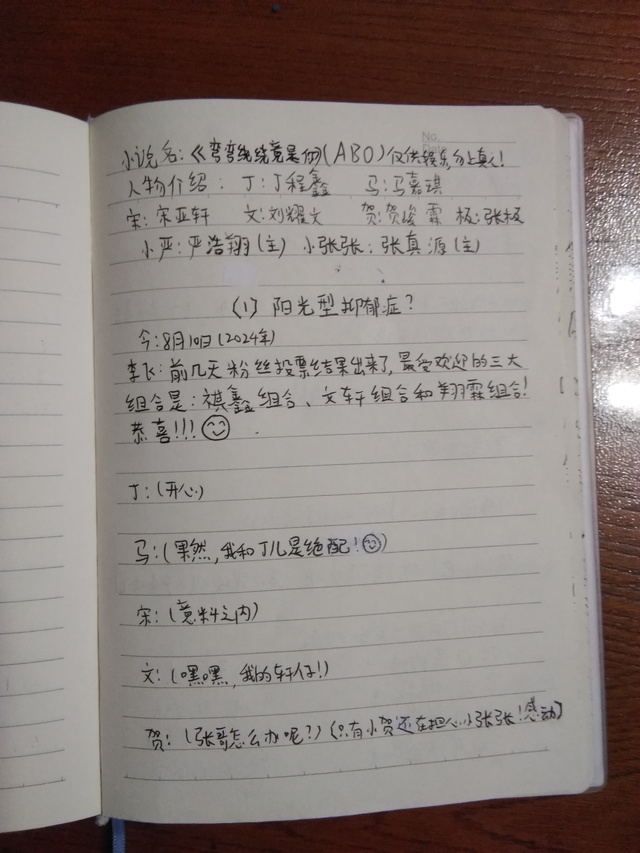 No.
Date
小说名：《弯弯绕绕竟是你》(ABO) 仅供娱乐,勿上真人!
人物介绍：丁：丁程鑫 马：马嘉琪
宋：宋亚轩 文：刘耀文 贺：贺峻霖 极：张极
小严：严浩翔(主) 小张张：张真源(主)
(1) 阳光型抑郁症?
今：8月10日(2024年)
李飞：前几天粉丝投票结果出来了,最受欢迎的三大
组合是：祺鑫组合、文轩组合和翔霖组合!
恭喜!!!
丁：(开心)
马：(果然,我和丁儿是绝配!)
宋：(意料之内)
文：(嘿嘿,我的轩仔!)
贺：(张哥怎么办呢?)(只有小贺还在担心小张张!感动)